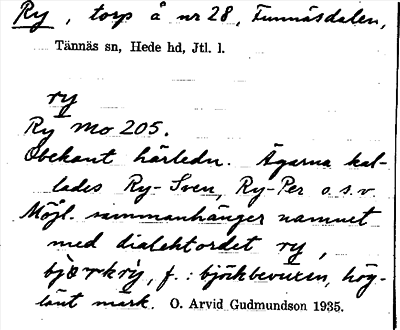 Ry, torp å nr 28, Funnäsdalen,
Tännäs sn, Hede hd, Jtl. l.
ry
Ry Mo 205.
Obekant härledn. Ägarna kal-
lades Ry-Sven, Ry-Per o.s.v.
Möjl. sammanhänger namnet
med dialektordet ry,
bjørkrỳ, f.: björkbevuxen, hög-
länt mark. O. Arvid Gudmundson 1935.